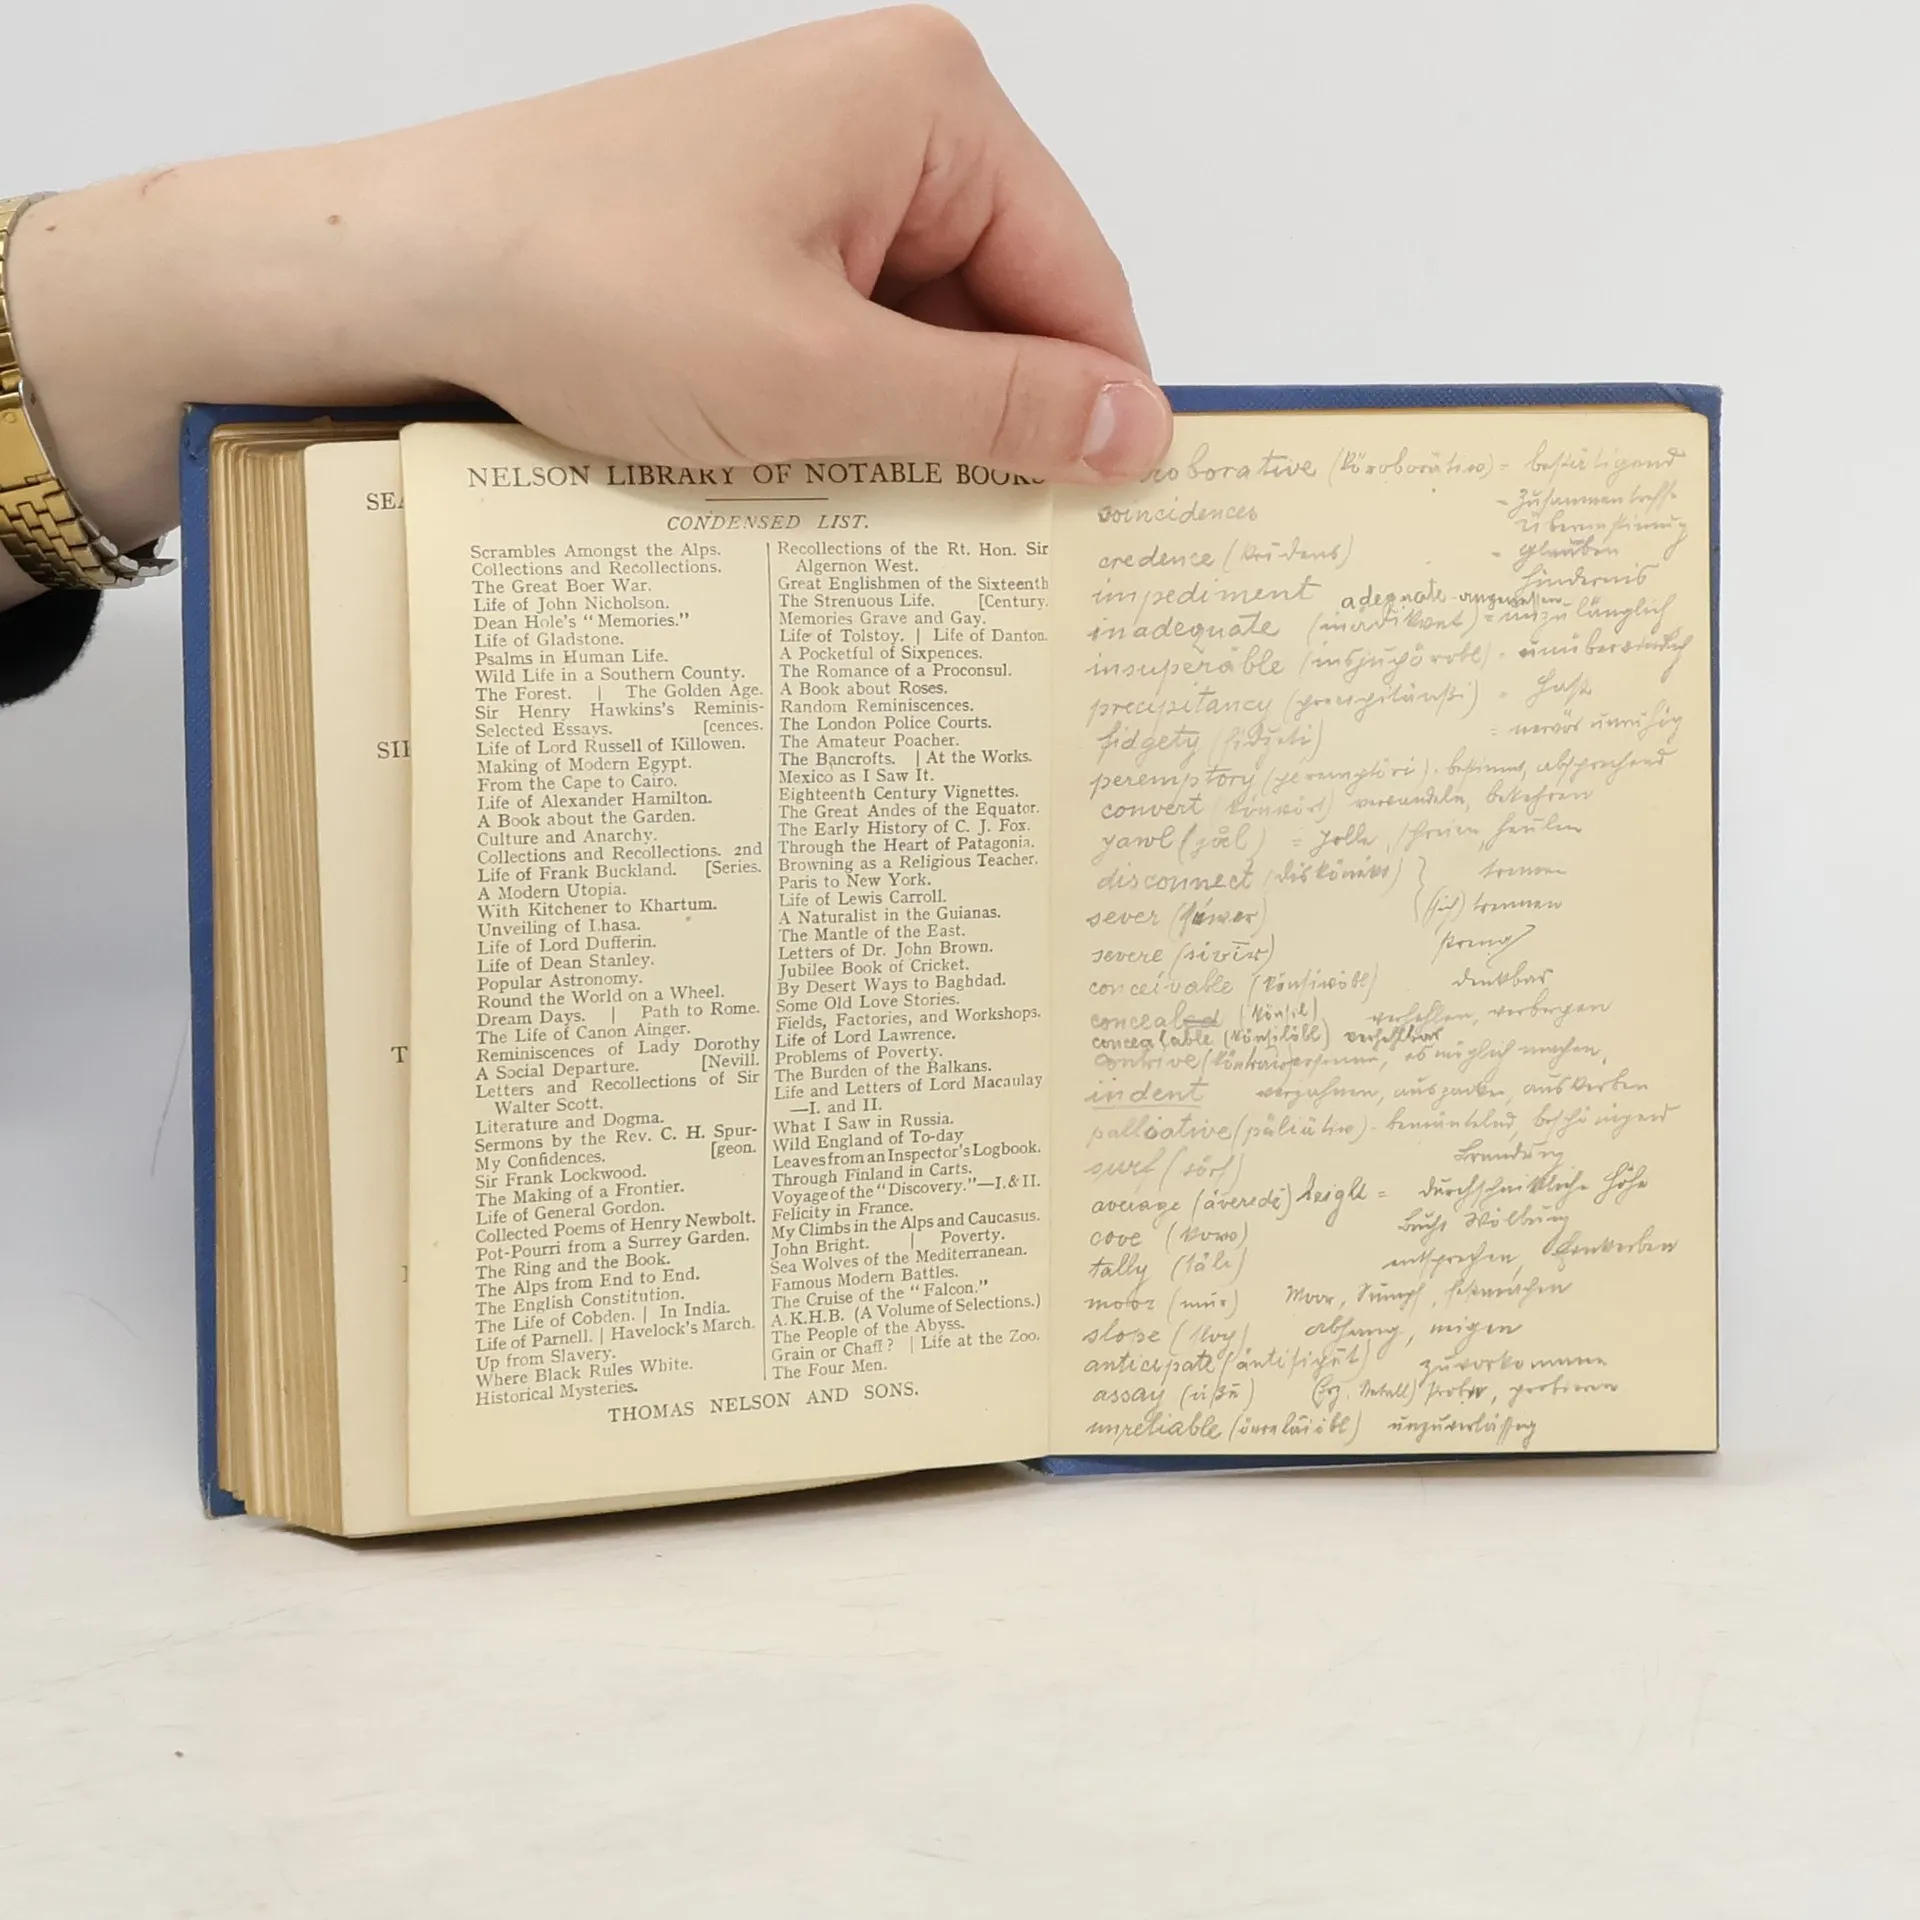 SEA
SIR
T
NELSON LIBRARY OF NOTABLE BOOKS
CONDENSED LIST.
Scrambles Amongst the Alps.
Collections and Recollections.
The Great Boer War.
Life of John Nicholson.
Dean Hole's "Memories."
Life of Gladstone.
Psalms in Human Life.
Wild Life in a Southern County.
The Forest. | The Golden Age.
Sir Henry Hawkins's Reminis-
Selected Essays. [cences.
Life of Lord Russell of Killowen.
Making of Modern Egypt.
From the Cape to Cairo.
Life of Alexander Hamilton.
A Book about the Garden.
Culture and Anarchy.
Collections and Recollections. 2nd
Life of Frank Buckland. [Series.
A Modern Utopia.
With Kitchener to Khartum.
Unveiling of Lhasa.
Life of Lord Dufferin.
Life of Dean Stanley.
Popular Astronomy.
Round the World on a Wheel.
Dream Days. | Path to Rome.
The Life of Canon Ainger.
Reminiscences of Lady Dorothy
A Social Departure. [Nevill.
Letters and Recollections of Sir
Walter Scott.
Literature and Dogma.
Sermons by the Rev. C. H. Spur-
My Confidences. [geon.
Sir Frank Lockwood.
The Making of a Frontier.
Life of General Gordon.
Collected Poems of Henry Newbolt.
Pot-Pourri from a Surrey Garden.
The Ring and the Book.
The Alps from End to End.
The English Constitution.
The Life of Cobden. | In India.
Life of Parnell. | Havelock's March.
Up from Slavery.
Where Black Rules White.
Historical Mysteries.
Recollections of the Rt. Hon. Sir
Algernon West.
Great Englishmen of the Sixteenth
The Strenuous Life. [Century.
Memories Grave and Gay.
Life of Tolstoy. | Life of Danton.
A Pocketful of Sixpences.
The Romance of a Proconsul.
A Book about Roses.
Random Reminiscences.
The London Police Courts.
The Amateur Poacher.
The Bancrofts. | At the Works.
Mexico as I Saw It.
Eighteenth Century Vignettes.
The Great Andes of the Equator.
The Early History of C. J. Fox.
Through the Heart of Patagonia.
Browning as a Religious Teacher.
Paris to New York.
Life of Lewis Carroll.
A Naturalist in the Guianas.
The Mantle of the East.
Letters of Dr. John Brown.
Jubilee Book of Cricket.
By Desert Ways to Baghdad.
Some Old Love Stories.
Fields, Factories, and Workshops.
Life of Lord Lawrence.
Problems of Poverty.
The Burden of the Balkans.
Life and Letters of Lord Macaulay
—I. and II.
What I Saw in Russia.
Wild England of To-day
Leaves from an Inspector's Logbook.
Through Finland in Carts.
Voyage of the "Discovery."—I. & II.
Felicity in France.
My Climbs in the Alps and Caucasus.
John Bright. | Poverty.
Sea Wolves of the Mediterranean.
Famous Modern Battles.
The Cruise of the "Falcon."
A.K.H.B. (A Volume of Selections.)
The People of the Abyss.
Grain or Chaff? | Life at the Zoo.
The Four Men.
THOMAS NELSON AND SONS.
roborative = bestätigend
coincidences
credence = Glauben
impediment Hindernis
adequate - angemessen
inadequate = unzulänglich
insuperable
precipitancy = Hast
fidgety = nervös unruhig
peremptory bestimmt, absprechend
convert verwandeln, bekehren
yawl = Jolle, schreien, heulen
disconnect trennen
sever (sich) trennen
severe streng
conceivable denkbar
concealed verhehlen, verbergen
concealable verhehlbar
contrive es möglich machen,
indent verzahnen, auszacken, auskerben
palliative bemäntelnd, beschönigend
surf (sörf) Brandung
average height = durchschnittliche Höhe
cove Bucht Wölbung
tally entsprechen,
moor Moor, Sumpf, festmachen
slope Abhang, neigen
anticipate zuvorkommen
assay probieren
unreliable unzuverlässig